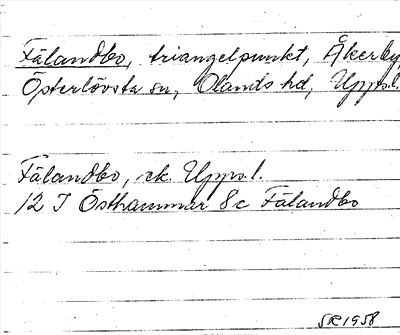 Fälandbo, triangelpunkt, Åkerby
Österlövsta sn, Olands hd, Upps.l.
Fälandbo, ek. Upps.l.
12 I Östhammar 8c Fälandbo
SR 1958